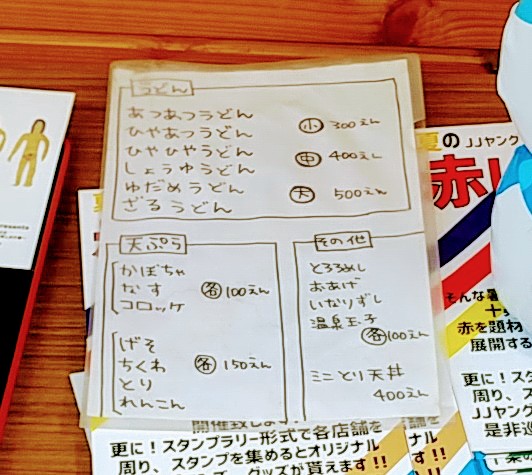 うどん
あつあつうどん
ひやあつうどん
ひやひやうどん
しょうゆうどん
ゆだめうどん
ざるうどん
小 300えん
中 400えん
大 500えん
天ぷら
かぼちゃ
なす
コロッケ
各100えん
げそ
ちくわ
とり
れんこん
各150えん
その他
とろろめし
おあげ
いなりずし
温泉玉子
各100えん
ミニとり天丼
400えん
夏の JJヤング
赤い
そんな暑
赤を題材
展開する
更に！スタ
周り、スタ
JJヤング
是非巡
開催致しま
更に！スタンプラリー形式で各店舗を
周り、スタンプを集めるとオリジナル
グッズが貰えます!!